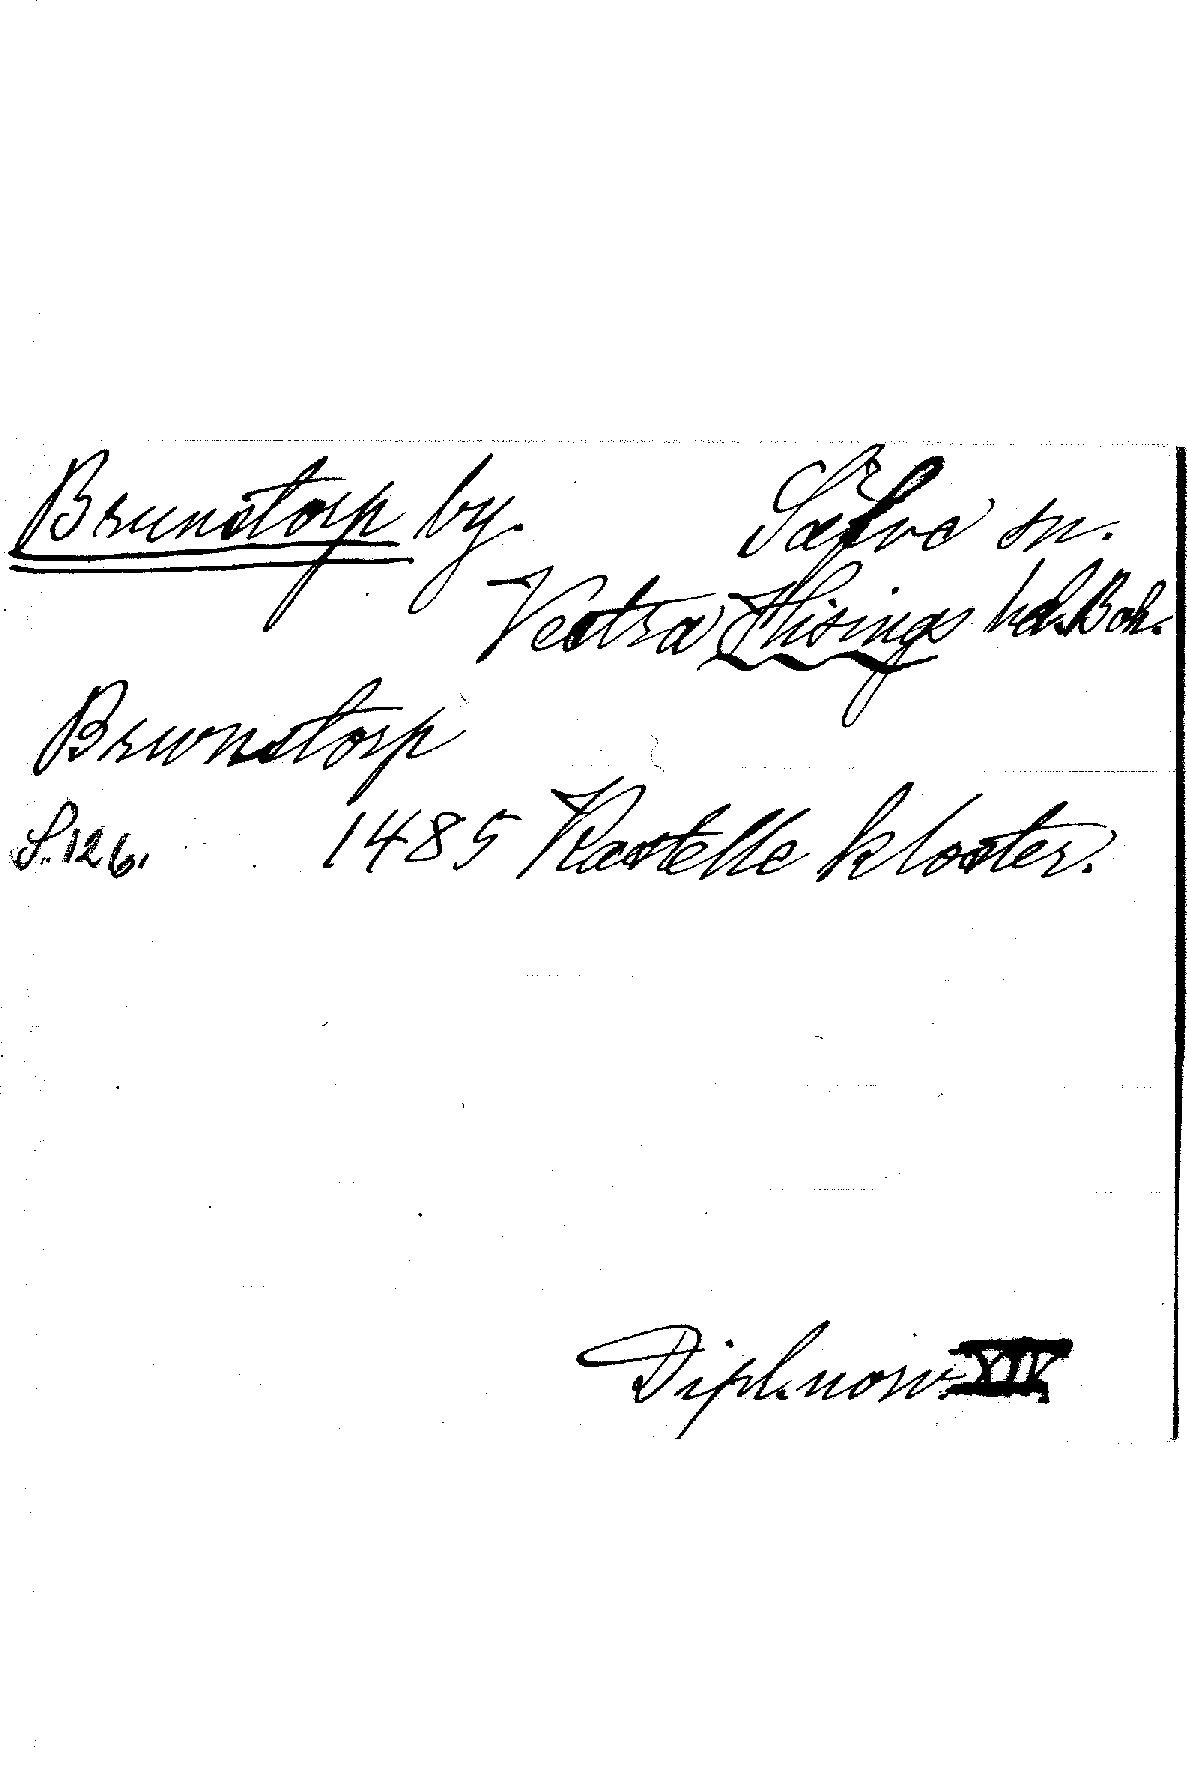 Brunstorp by. Säfve sn.
Vestra Hisings hd. Boh.
Brwnstorp
S. 126. 1485 Kastelle kloster.
Dipl. norv. XIV